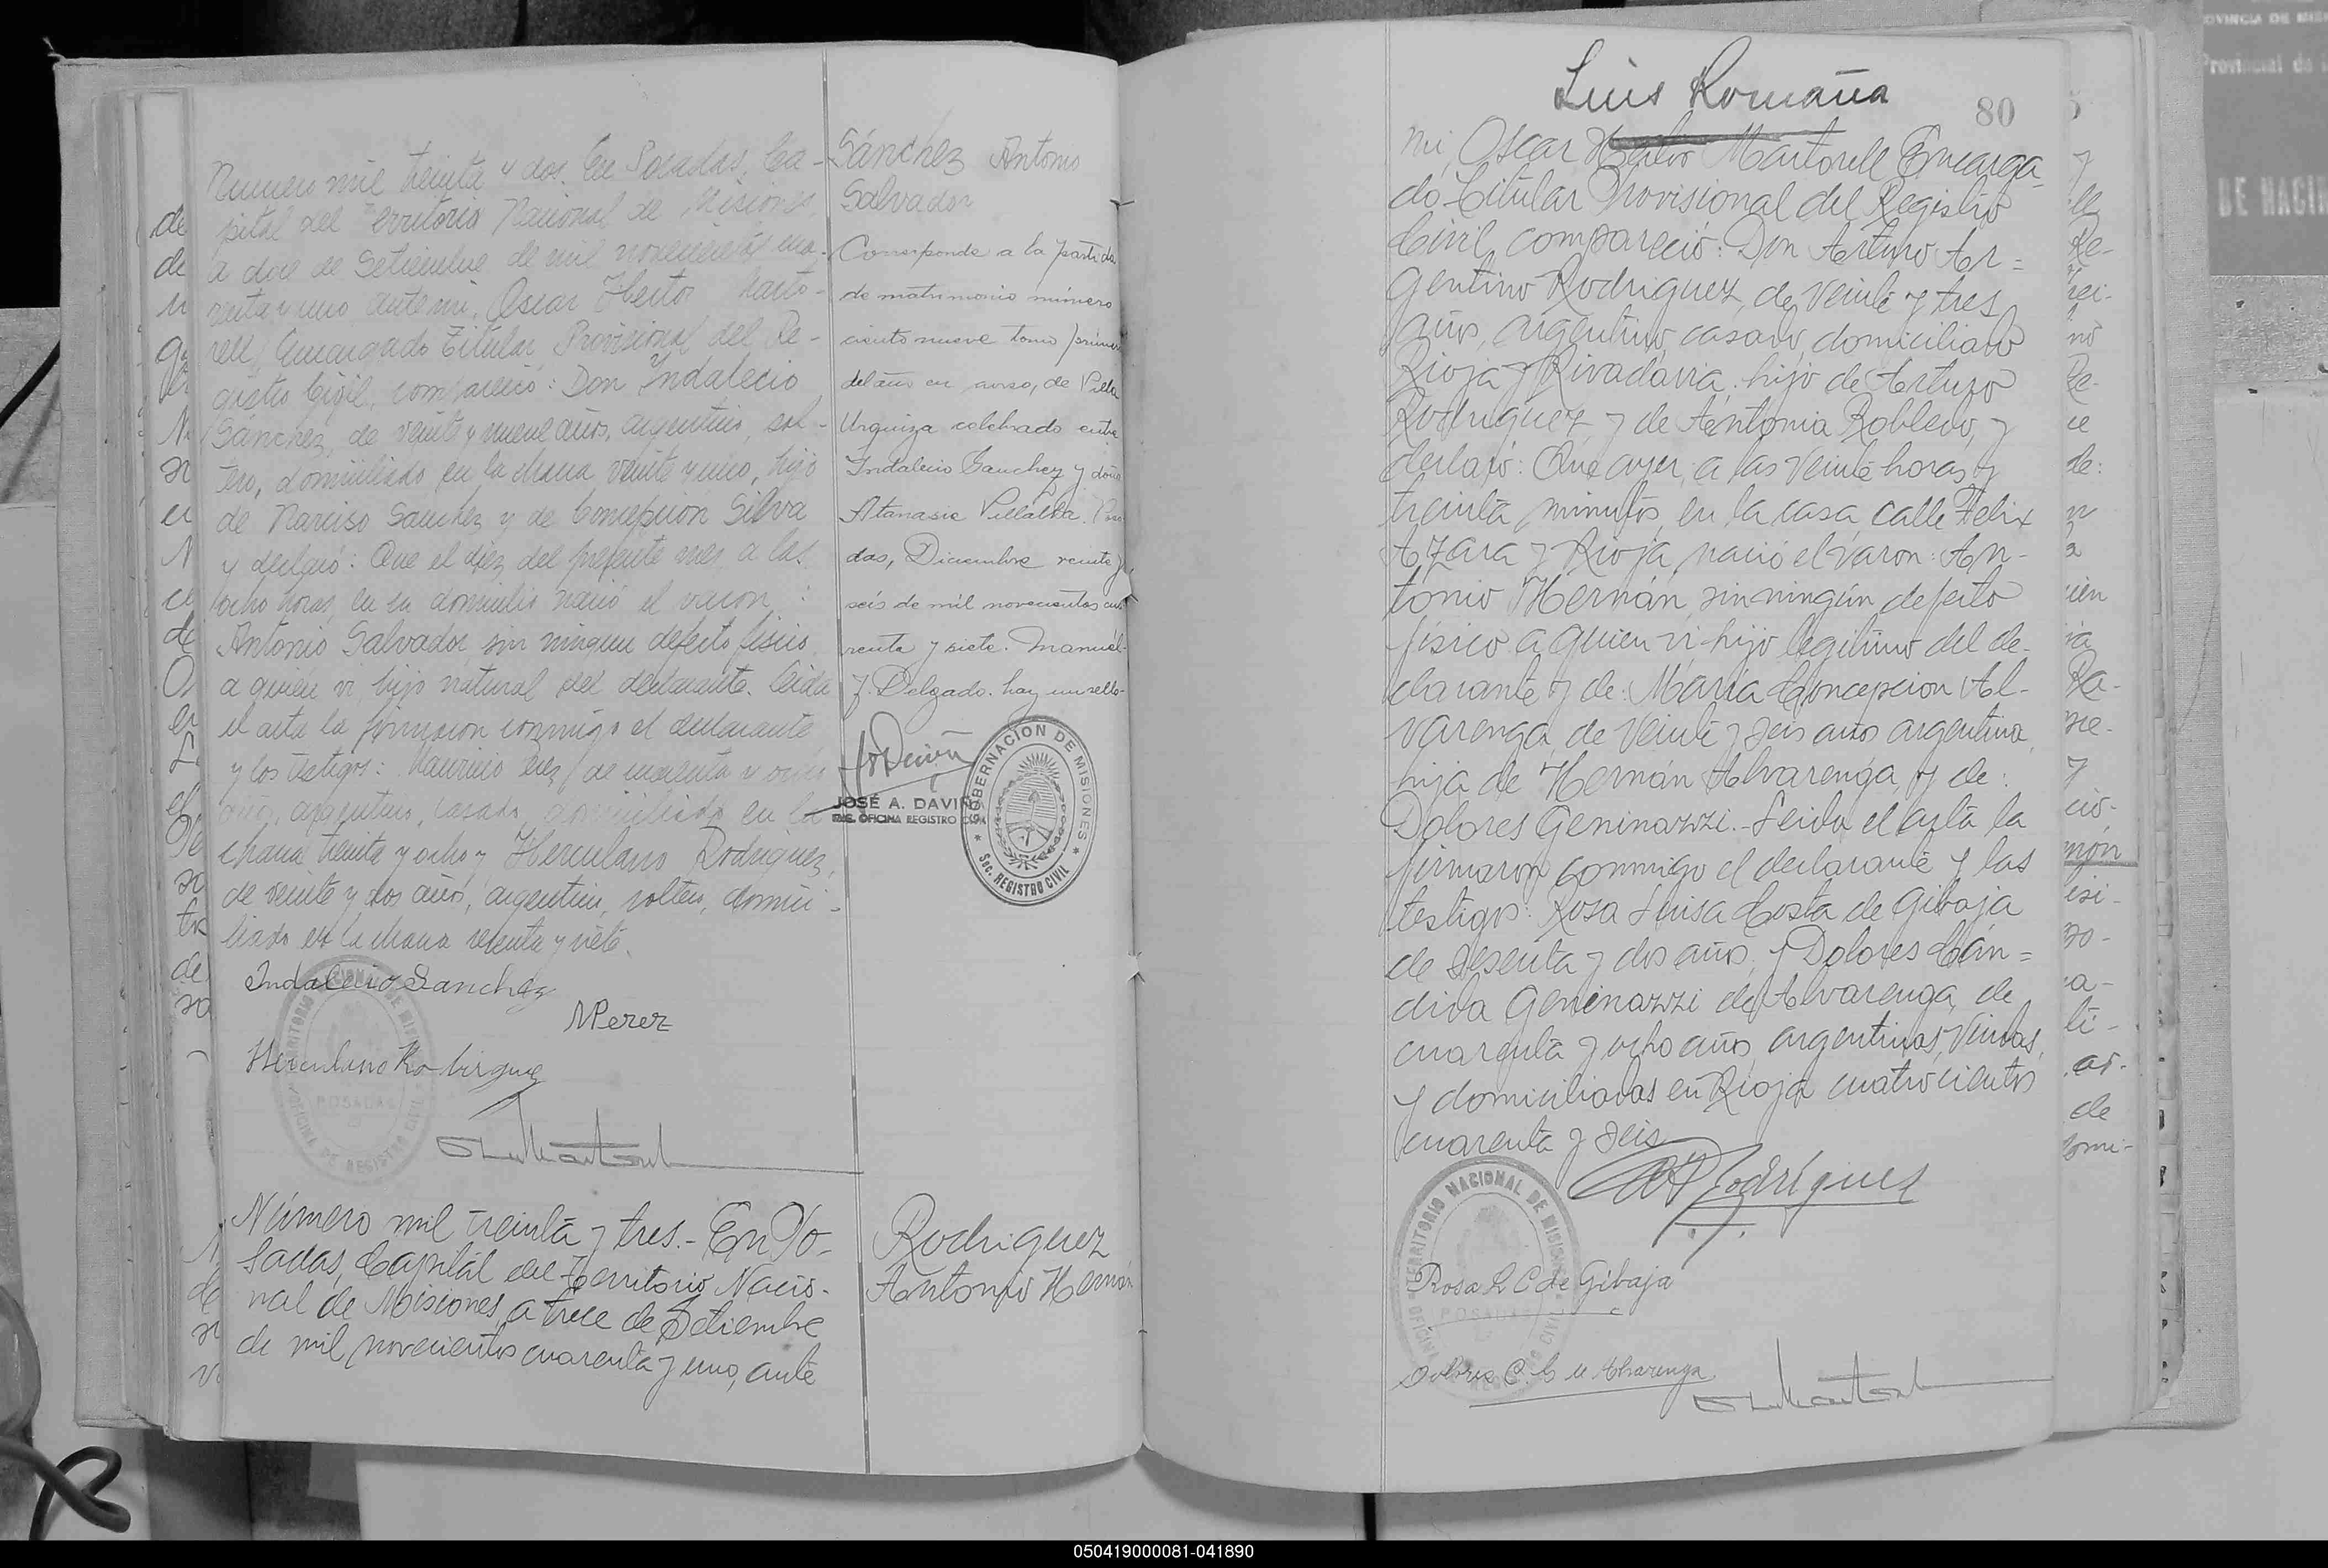 Número mil treinta y dos. En Posadas, Ca-
pital del Territorio Nacional de Misiones,
a doce de Setiembre de mil novecientos cua-
renta y uno, ante mi, Oscar Hector Marto-
rell, Encargado Titular Provisional del Re-
gistro Civil, compareció: Don Indalecio
Sánchez, de veinte y nueve años, argentino, sol-
tero, domiciliado en la chacra veinte y uno, hijo
de Narciso Sanchez y de Concepcion Silva
y declaró: Que el diez del presente mes a las
ocho horas, en su domicilio nació el varon:
Antonio Salvador, sin ningun defecto fisico
a quien vi hijo natural del declarante. Leida
el acta la firmaron conmigo el declarante
y los testigos: Mauricio de y
años, argentino, casado, domiciliado en la
chacra treinta y ocho y Herculano Rodriguez,
de veinte y dos años, argentino, soltero, domici-
liado en la chacra y siete.
Indalecio Sanchez
MPerez
Herculano Rodriguez
Sánchez Antonio
Salvador
Corresponde a la partida
de matrimonio número
ciento nueve tomo primero
del año en curso, de Villa
Urquiza celebrado entre
Indalecio Sanchez y doña
Atanasia Villalba. Posa
das, Diciembre veinte y
seis de mil novecientos cua
renta y siete. Manuel
J. Delgado. hay un sello.
JOSÉ A. DAVIÑA
ENC. OFICINA REGISTRO CIVIL
GOBERNACION DE MISIONES
Sec. REGISTRO CIVIL
TERRITORIO NACIONAL DE MISIONES
POSADAS
OFICINA DE REGISTRO CIVIL
Número mil treinta y tres.- En Po-
sadas, Capital del Territorio Nacio-
nal de Misiones, a trece de Setiembre
de mil novecientos cuarenta y uno, ante
Rodriguez
Antonio Hernán
Luis Romaña
80
mi, Oscar Hector Martorell Encarga-
do Titular Provisional del Registro
Civil, compareció: Don Arturo Ar=
gentino Rodriguez, de veinte y tres
años, argentino, casado, domiciliado
Rioja y Rivadavia, hijo de Arturo
Rodriguez y de Antonia Robledo, y
declaró: Que ayer, a las veinte horas y
treinta minutos, en la casa calle Felix
Azara y Rioja, nació el varon: An-
tonio Hernán, sin ningún defecto
fisico a quien vi hijo legitimo del de-
clarante y de Maria Concepcion Al-
varenga, de veinte y seis años argentina,
hija de Hernán Alvarenga, y de:
Dolores Geninazzi.- Leida el acta la
firmaron conmigo el declarante y las
testigos: Rosa Luisa Costa de Gibaja
de sesenta y dos años, y Dolores Cán=
dida Geninazzi de Alvarenga, de
cuarenta y ocho años, argentinas, viudas,
y domiciliadas en Rioja cuatrocientos
cuarenta y seis
AARodríguez
TERRITORIO NACIONAL DE MISIONES
POSADAS
Rosa L C de Gibaja
Dolores C. G de Alvarenga
050419000081-041890